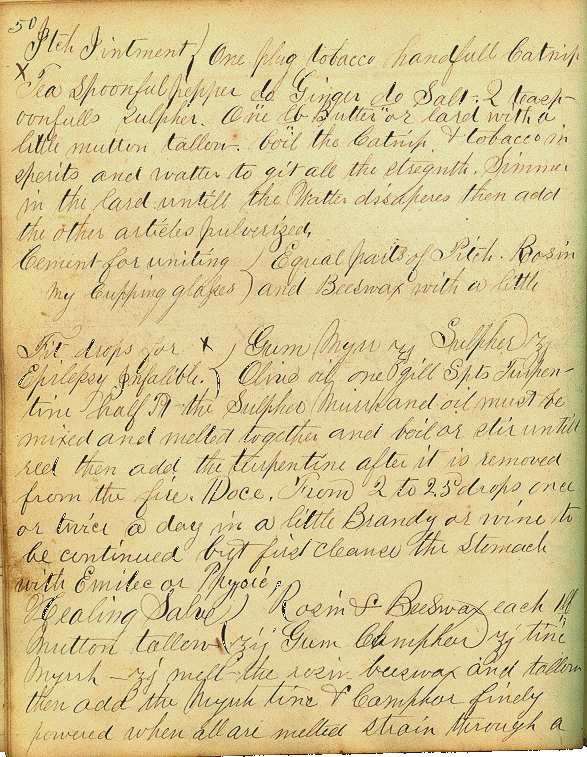 50
Itch Ointment } One plug tobacco handfull Catnip
x Tea Spoonful pepper do Ginger do Salt. 2 teasp-
oonfulls Sulpher. One lb Butter or lard with a
little mutton tallow. boil the Catnip & tobacco in
sperits and watter to git all the stregnth. Simmer
in the lard untill the Watter disaperes then add
the other articles pulverized,
Cement for uniting } Equal parts of Pitch. Rosin
my Cupping glasses } and Beeswax with a little
Fit drops for x } Gum Myrr ʒj Sulpher ʒj
Epilepsy Infalible. } Olive oil one gill Spts Turpen-
tine half Pt the Sulpher Mirr and oil must be
mixed and melted together and boil or stir untill
red then add the turpentine after it is removed
from the fire. Doce. From 2 to 25 drops once
or twice a day in a little Brandy or wine to
be continued but first cleanse the Stomach
with Emitec or Physic
Healing Salve } Rosin & Beeswax each
Mutton tallow ʒij Gum Camphor ʒj tinc
Myrrh ʒj melt the rosin beeswax and tallow
then add the Myrrh tinc & Camphor finely
powered when all are melted strain through a